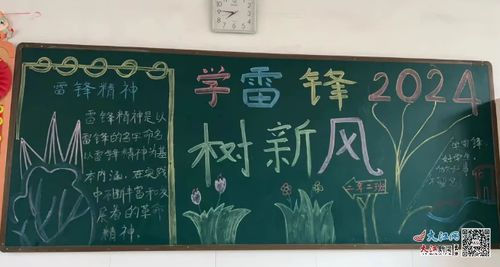 雷锋精神
雷锋精神是以
雷锋的名字命名
以雷锋精神为基
本内涵，在实践
中不断丰富和发
展着的革命
精神。
学雷锋 2024
树新风
二年二班
大江网